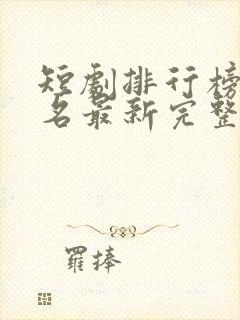 短剧排行榜
名最新完整
羅捧